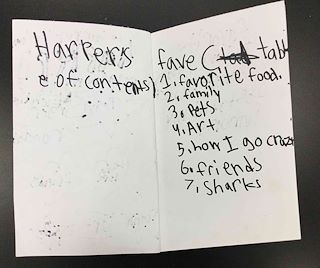 Harpers fave ( tabl
e of contents) 1. favorite food.
2. family
3. Pets
4. Art
5. how I go crazy
6. friends
7. Sharks